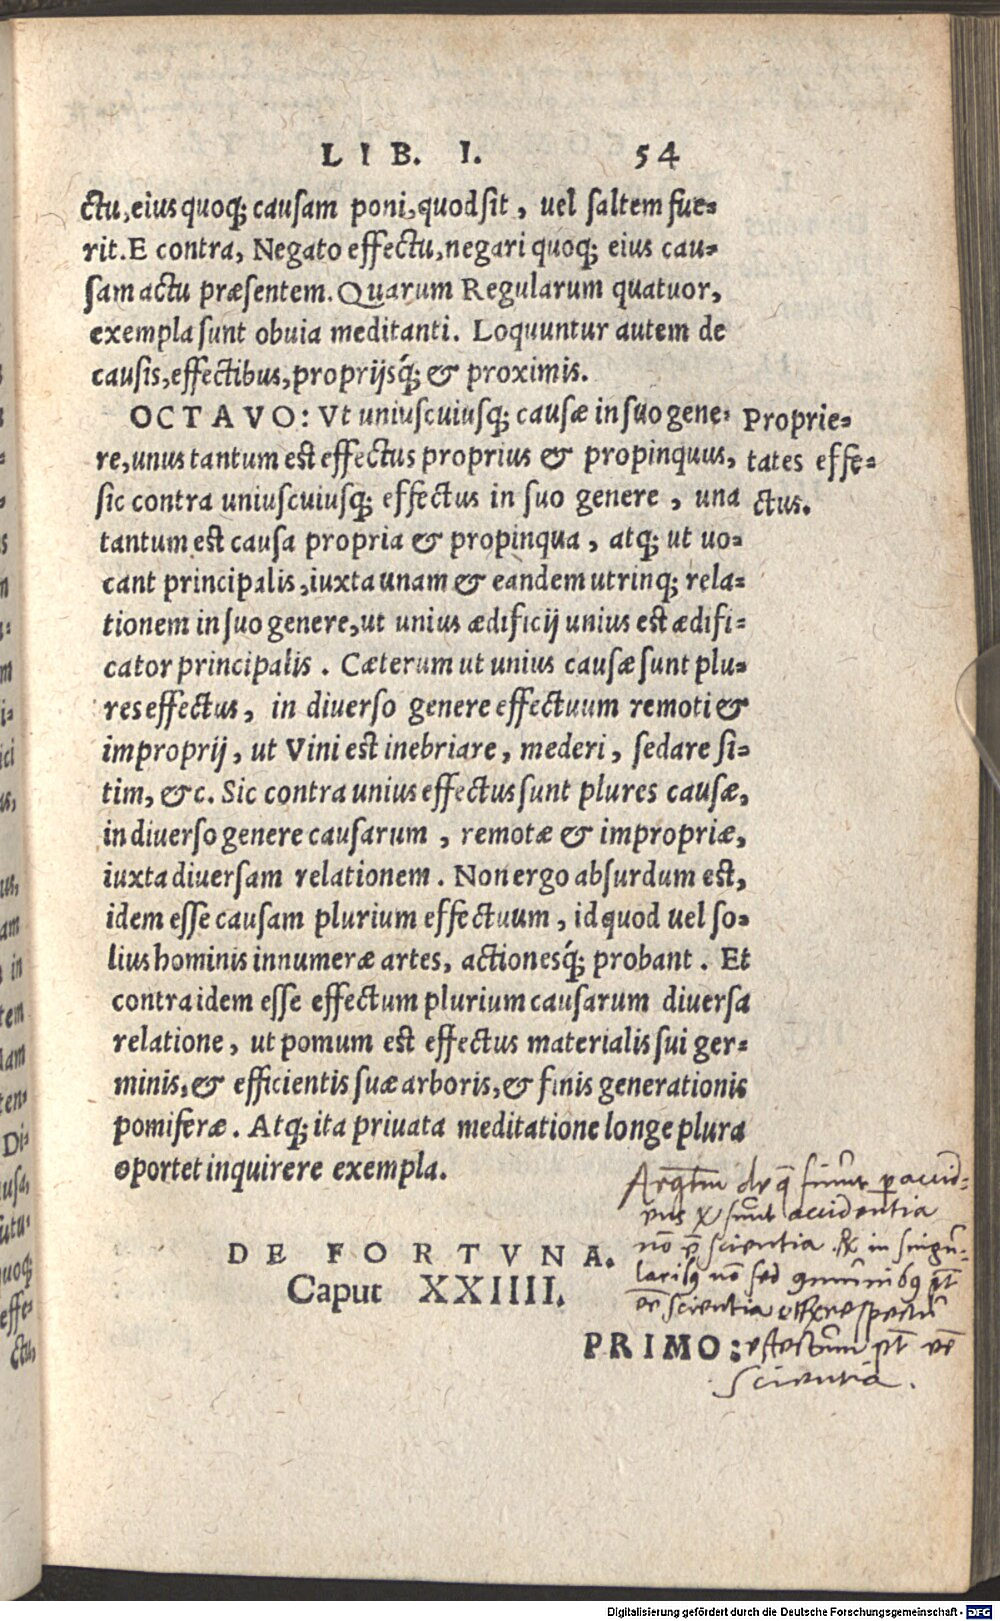 LIB. I. 54
ctu, eius quoq; causam poni, quod sit, uel saltem fue-
rit. E contra, Negato effectu, negari quoq; eius cau-
sam actu præsentem. Quarum Regularum quatuor,
exempla sunt obuia meditanti. Loquuntur autem de
causis, effectibus, proprijsq́; & proximis.
OCTAVO: Vt uniuscuiusq; causæ in suo gene-
re, unus tantum est effectus proprius & propinquus,
sic contra uniuscuiusq; effectus in suo genere, una
tantum est causa propria & propinqua, atq; ut uo-
cant principalis, iuxta unam & eandem utrinq; rela-
tionem in suo genere, ut unius ædificij unius est ædifi-
cator principalis. Cæterum ut unius causæ sunt plu-
res effectus, in diuerso genere effectuum remoti &
improprij, ut Vini est inebriare, mederi, sedare si-
tim, &c. Sic contra unius effectus sunt plures causæ,
in diuerso genere causarum, remotæ & impropriæ,
iuxta diuersam relationem. Non ergo absurdum est,
idem esse causam plurium effectuum, id quod uel so-
lius hominis innumeræ artes, actionesq́; probant. Et
contra idem esse effectum plurium causarum diuersa
relatione, ut pomum est effectus materialis sui ger-
minis, & efficientis suæ arboris, & finis generationis
pomiferæ. Atq; ita priuata meditatione longe plura
oportet inquirere exempla.
Proprie-
tates effe-
ctus.
DE FORTVNA.
Caput XXIIII.
PRIMO:
accid-
ens sunt accidentia
scientia in singu-
sed
scientia respectu
effectuum
scientia.